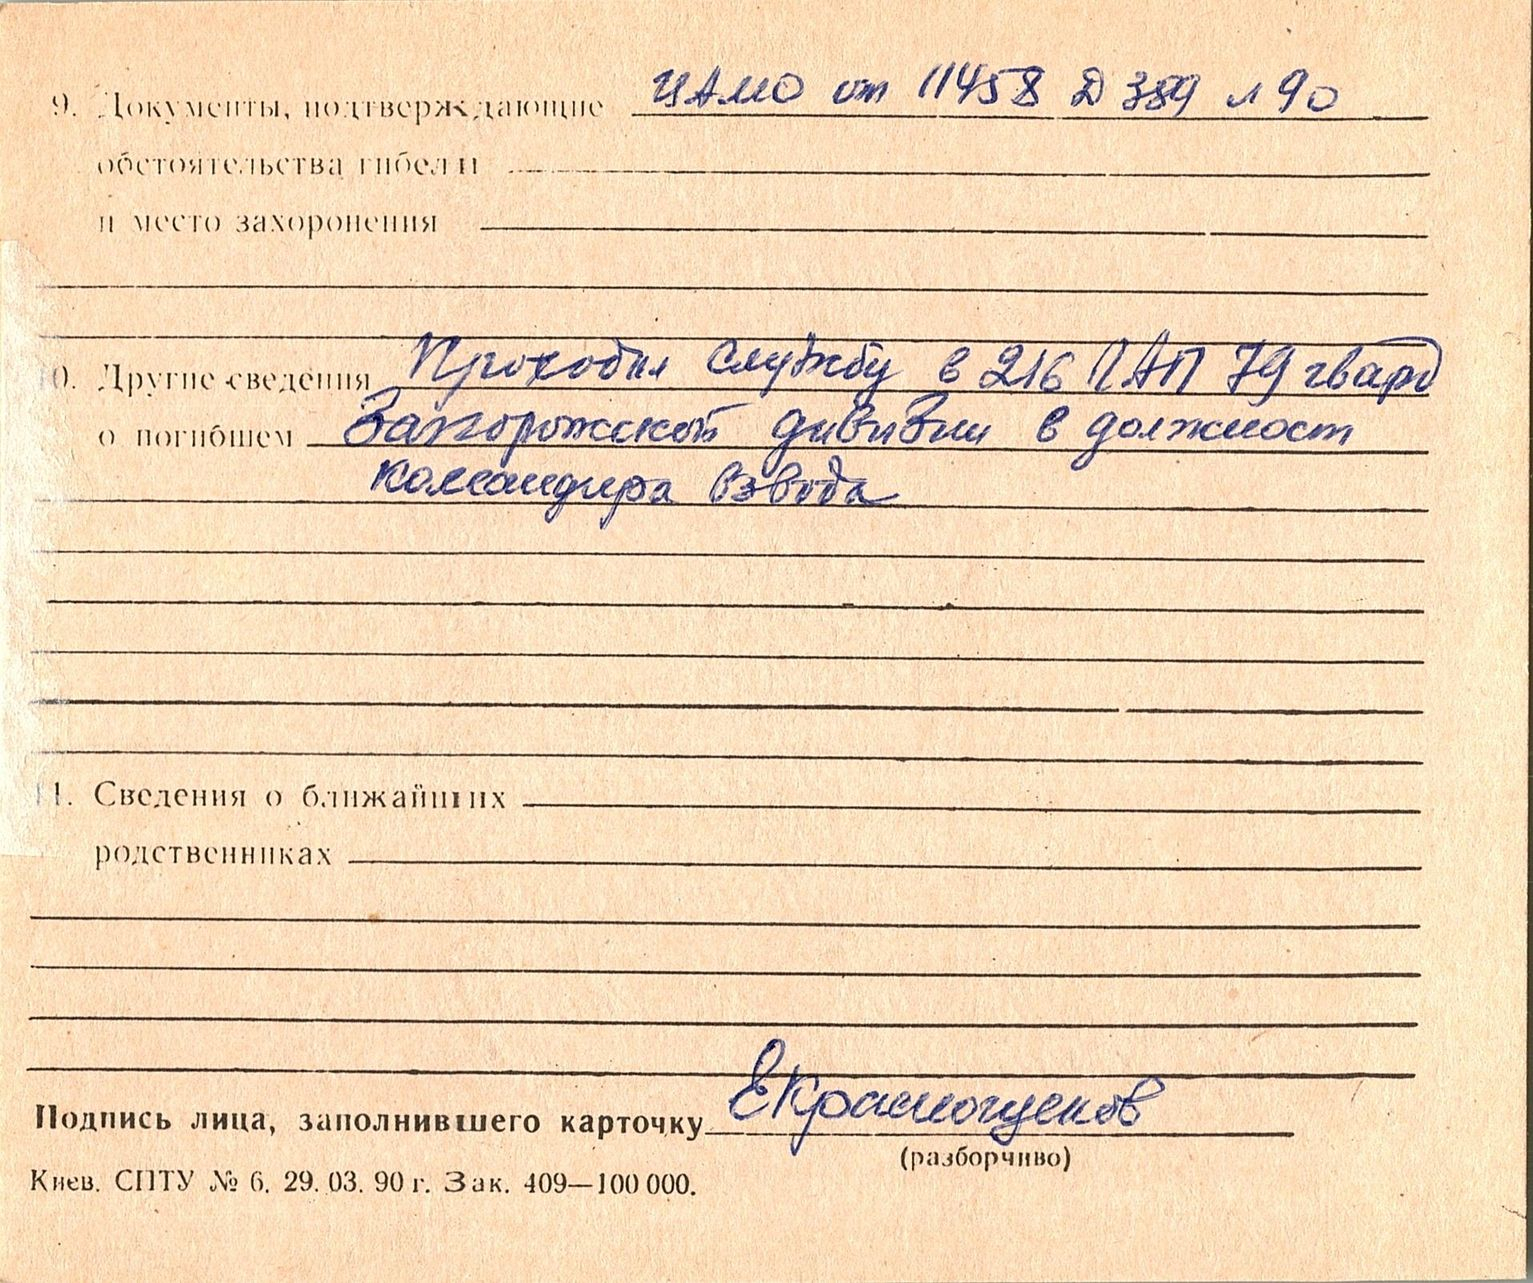 9. Документы, подтверждающие ЦАМО оп 11458 Д 389 л 90
обстоятельства гибели
и место захоронения
10. Другие сведения Проходил службу в 216 ГАП 79 гвард
о погибшем Запорожской дивизии в должност
командира взвода
11. Сведения о ближайших
родственниках
Подпись лица, заполнившего карточку ЕКраснощеков
(разборчиво)
Киев. СПТУ № 6. 29. 03. 90 г. Зак. 409—100 000.